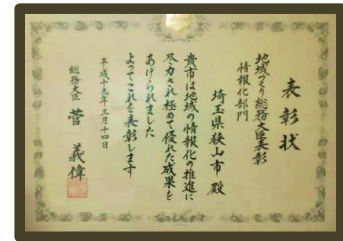 表彰状
地域づくり総務大臣表彰
情報化部門
埼玉県狭山市 殿
貴市は地域の情報化の推進に
尽力され極めて優れた成果を
あげられました
よってこれを表彰します
平成十九年三月十四日
総務大臣 菅 義偉